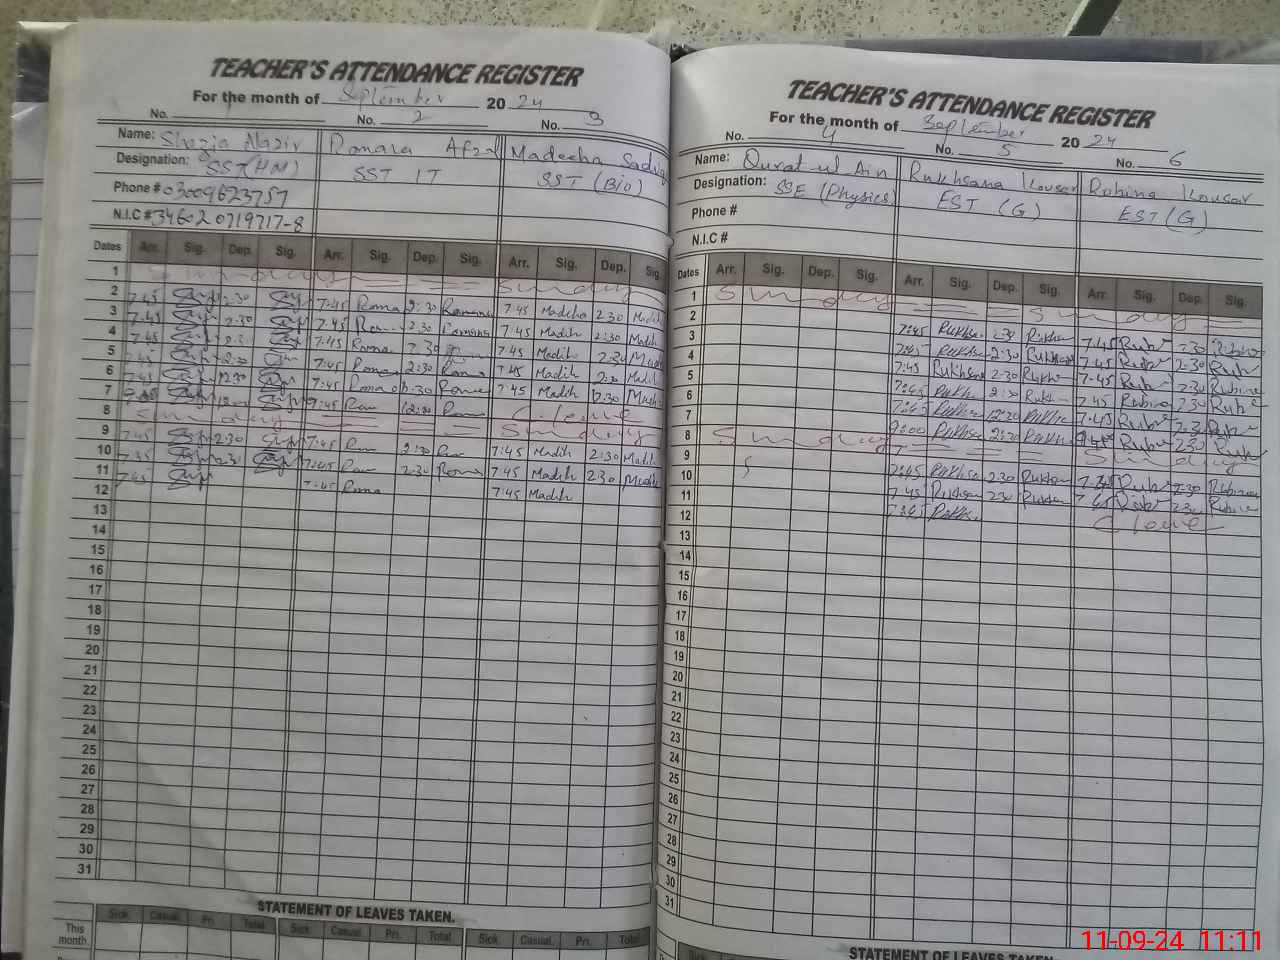 TEACHER'S ATTENDANCE REGISTER
For the month of September 20 24
No. 1 No. 2 No. 3
Name: Shazia Nazir Romana Afzal Madeeha Sadiq
Designation: SST(HM) SST IT SST (Bio)
Phone # 03009623757
N.I.C # 346020719717-8
Dates Arr. Sig. Dep. Sig. Arr. Sig. Dep. Sig. Arr. Sig. Dep. Sig.
1 Sunday Sunday
2 7:45 2:30 7:45 Roma 2:30 Romana 7:45 Madiha 2:30 Madih
3 7:45 2:30 7:45 2:30 Romana 7:45 Madih 2:30 Madih
4 7:45 2:30 7:45 Roma 2:30 7:45 Madih 2:30
5 7:45 2:30 7:45 Roma 2:30 Roma 7:45 Madih 2:30 Madih
6 7:45 12:30 7:45 Roma 12:30 Roma 7:45 Madih 12:30
7 7:45 12:30 C. leave
8 Sunday Sunday
9 7:45 2:30 7:45 2:30 7:45 Madih 2:30 Madih
10 7:45 2:30 7:45 2:30 Roma 7:45 Madih 2:30
11 7:45 7:45 Roma 7:45 Madih
12
13
14
15
16
17
18
19
20
21
22
23
24
25
26
27
28
29
30
31
STATEMENT OF LEAVES TAKEN.
Sick. Casual. Pri. Total Sick. Casual. Pri. Total Sick. Casual. Pri. Total
This month.
TEACHER'S ATTENDANCE REGISTER
For the month of September 20 24
No. 4 No. 5 No. 6
Name: Qurat-ul Ain Rukhsana Kousar Robina Kousar
Designation: SSE (Physics) EST (G) EST (G)
Phone #
N.I.C #
Dates Arr. Sig. Dep. Sig. Arr. Sig. Dep. Sig. Arr. Sig. Dep. Sig.
1 Sunday Sunday
2 7:45 Rukhs 2:30 Rukhsan 7:45 Rub 2:30
3 7:45 Rukhsa 2:30 Rukhsan 7:45 Rub 2:30 Rub
4 7:45 Rukhsan 2:30 Rukhs 7:45 Rub 2:30 Rubina
5 7:45 Rukhs 2:30 Rukh 7:45 Rubina 2:30 Rub
6 7:45 Rukhsa 12:30 Rukhs 7:45 Rub
7 9:00 Rukhsa 2:30 Rukhs Rub 2:30 Rub
8 Sunday Sunday
9 7:45 Rukhsa 2:30 Rukhsan 7:45 Rub 2:30 Rubina
10 7:45 Rukhsan 2:30 Rukhsan 7:45 Rub 2:30 Rubina
11 7:45 Rukhs C leave
12
13
14
15
16
17
18
19
20
21
22
23
24
25
26
27
28
29
30
31
STATEMENT OF LEAVES TAKEN.
11-09-24 11:11